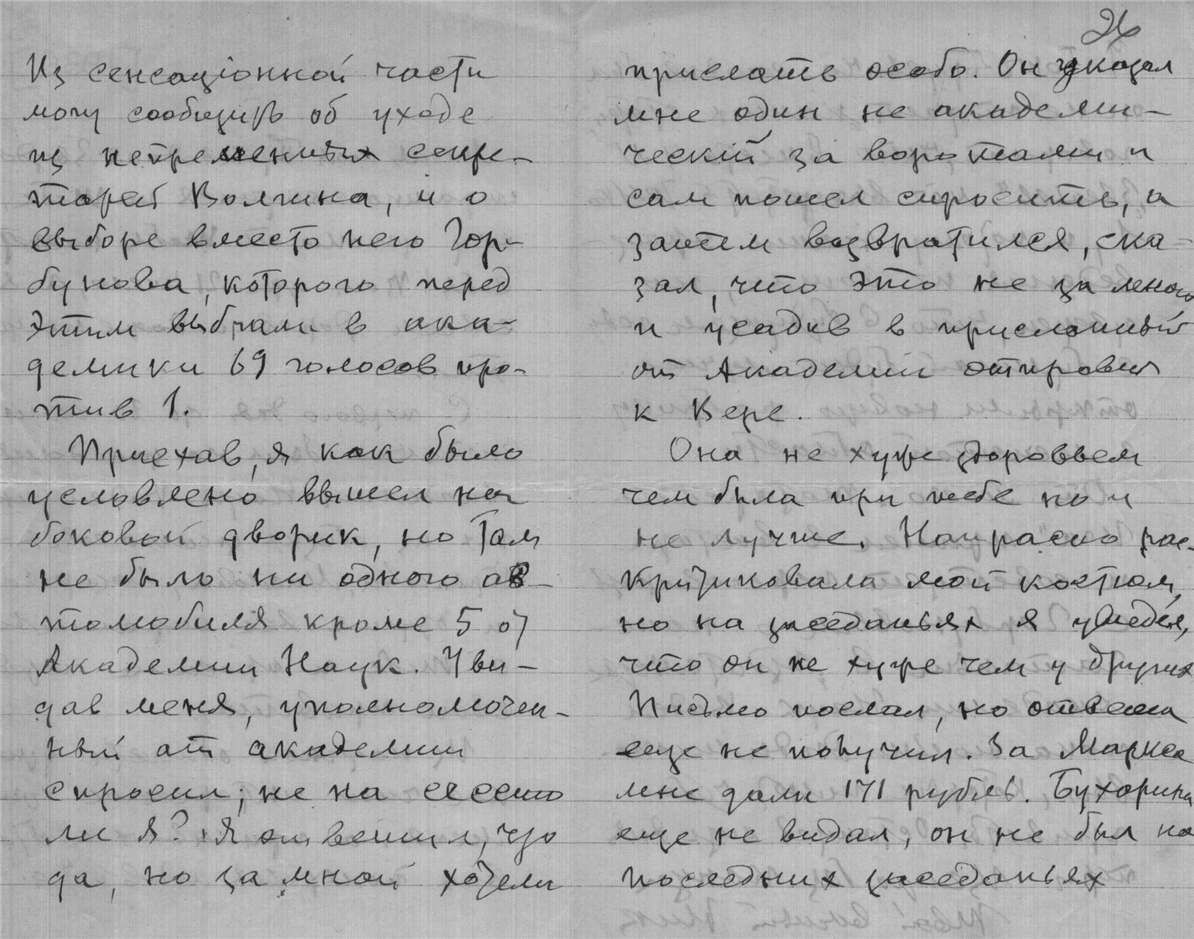 Из сенсаціонной части
могу сообщить об уходе
из непременных секре-
тарей Волгина, и о
выборе вместо него Гор-
бунова, которого перед
этим выбрали в ака-
демики 69 голосов про-
тив 1.
Приехав, я как было
условлено вышел на
боковый дворик, но там
не было ни одного ав-
томобиля кроме 5 от
Академии Наук. Уви-
дав меня, уполномочен-
ный от академии
спросил; не на сессию
ли я? Я ответил, что
да, но за мной хотели
26
прислать особо. Он указал
мне один не академи-
ческій за воротами и
сам пошел спросить, а
затем возвратился, ска-
зал, что это не за мною
и усадив в присланный
от Академии отправил
к Вере.
Она не хуже здоровьем
чем была при тебе но и
не лучше. Напрасно рас-
критиковала мой костюм,
но на заседаньях я увидел,
что он не хуже чем у других
Письмо послал, но ответа
еще не получил. За Маркса
мне дали 171 рубль. Бухарина
еще не видал, он не был на
последних заседаньях